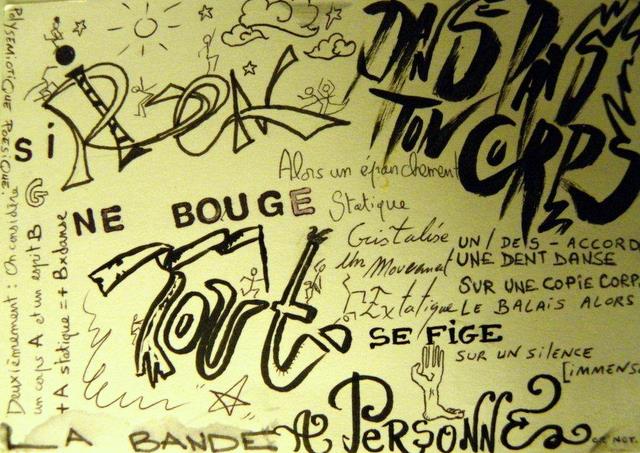 POLYSEMIOTIQUE POESIQUE.
Deuxièmement : On considère
un corps A et un esprit B
+ A statique = + Bxdanse
Si RIEN
NE BOUGE
DANS DANS
TON CORPS
Alors un épanchement
Statique
Cristalise
Un Mouvement
Extatique
UN / DES - ACCORD
UNE DENT DANSE
SUR UNE COPIE CORP
LE BALAIS ALORS
TOUT
SE FIGE
SUR UN SILENCE
[IMMENS
LA BANDE A PERSONNE
OR NOT.